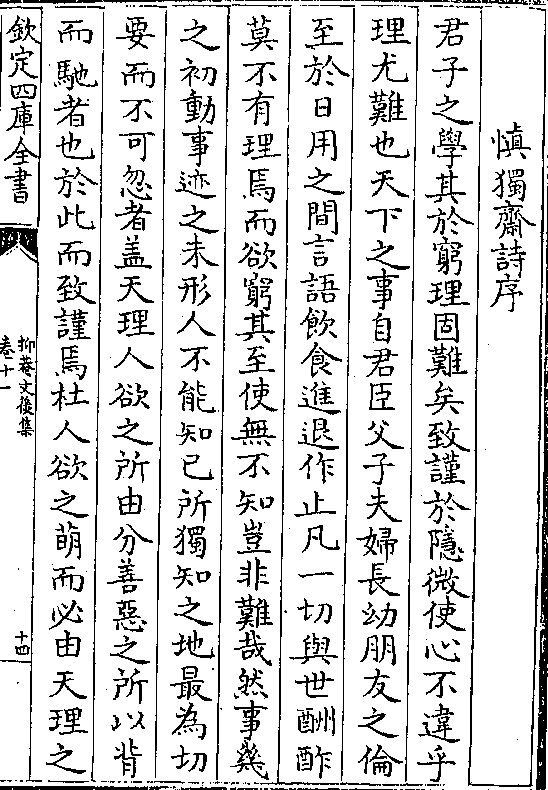 慎獨齋詩序
君子之學其於窮理固難矣致謹於隱微使心不違乎
理尤難也天下之事自君臣父子夫婦長幼朋友之倫
至於日用之間言語飲食進退作止凡一切與世酬酢
莫不有理焉而欲窮其至使無不知豈非難哉然事幾
之初動事迹之未形人不能知已所獨知之地最為切
要而不可忽者盖天理人欲之所由分善惡之所以背
而馳者也於此而致謹焉杜人欲之萌而必由天理之
欽定四庫全書
抑菴文後集
卷十一
十四